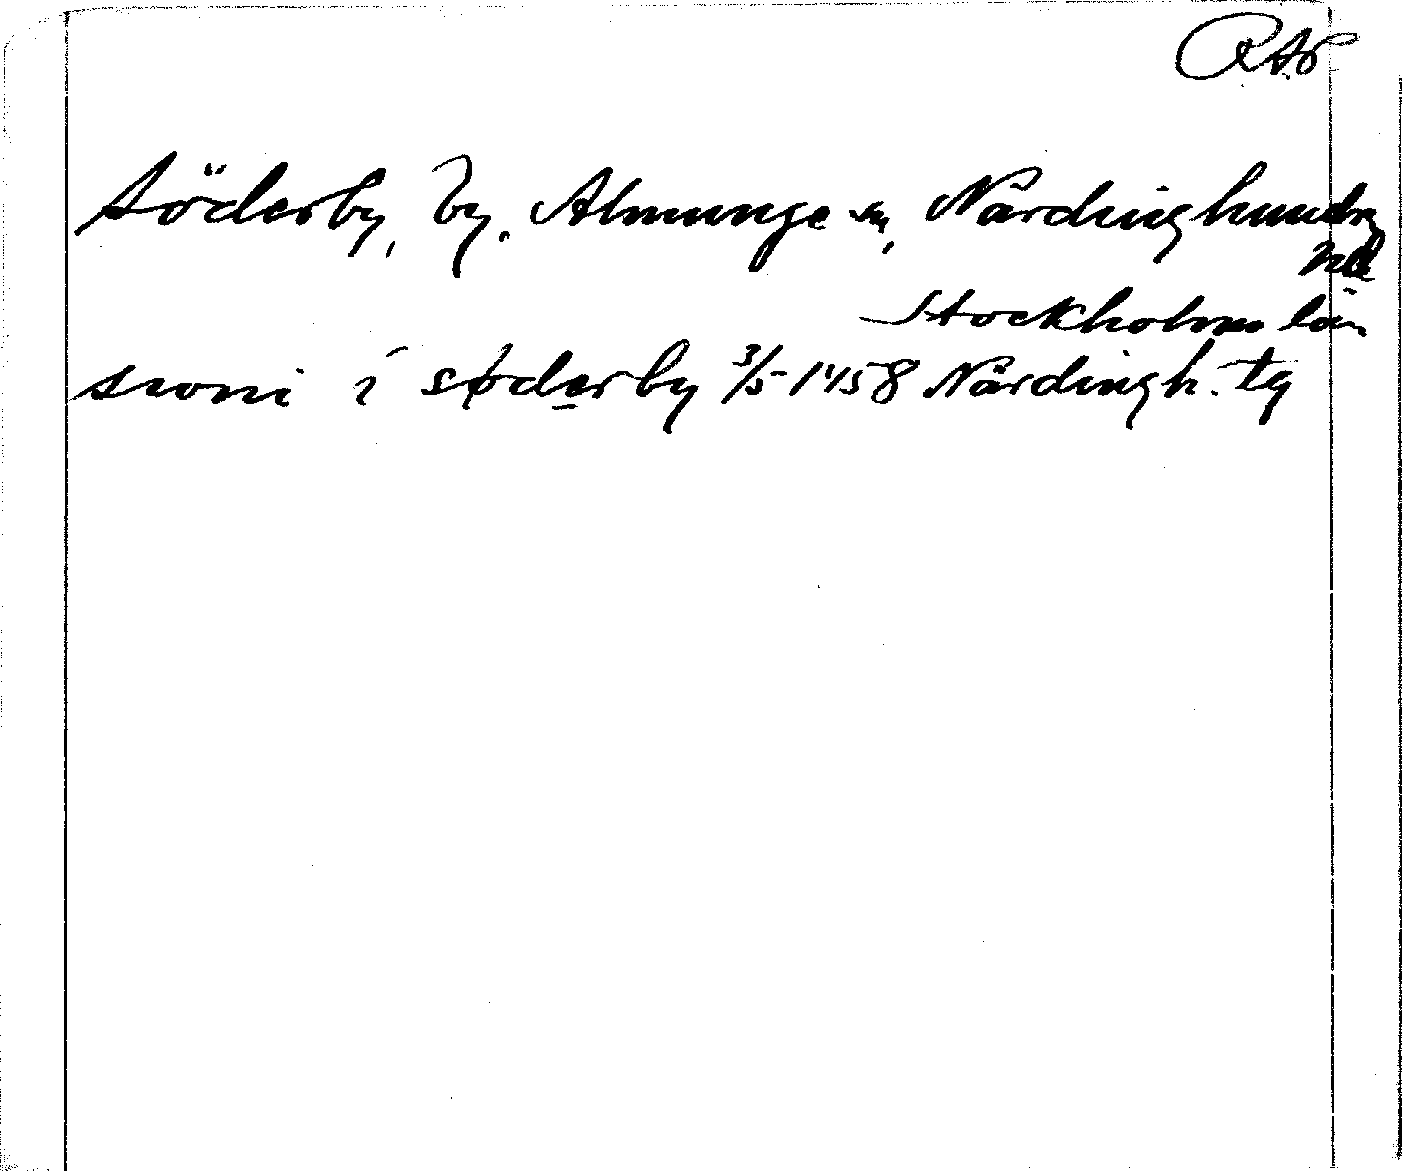 RAP
Söderby, by. Almunge sn, Närdinghundra
hd
Stockholms län
sroni i søderby 3/5 1458 Närdingh. tg